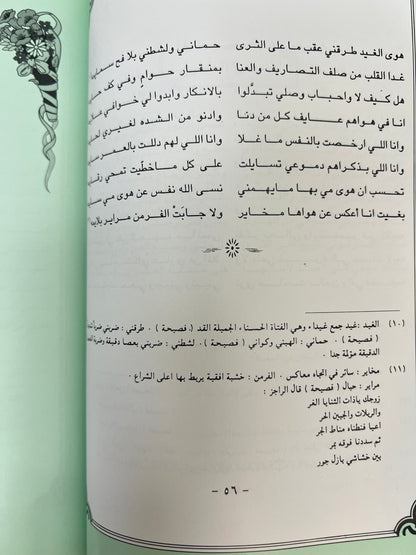 هوى الغيد طرقني عقب ما على الثرى حماني ولشطني بلا فح
غدا القلب من صلف التصاريف والعنا بمنقار حوام وفي كف
هل كيف لا واحباب وصلي تبدلوا بالانكار وابدوا لي خوافي
انا في هواهم عايف كل من دنا وادنو من الشده لغيري
وانا اللي ارخصت بالنفس ما غلا وانا اللي لهم دللت بالعمر
وانا اللي بذكراهم دموعي تسايلت على كل ماخطيت تمحي
تحسب ان هوى مي بها مايهمني نسى الله نفس عن هوى مي
بغيت انا أعكس عن هواها مخاير ولا جابت الفرمن مراير
(١٠) الغيد : غيد جمع غيداء وهي الفتاة الحسناء الجميلة القد ( فصيحة ) ٠ طرقني : ضربني ضربا
( فصيحة ) ٠ حماني : الهبني وكواني ( فصيحة ) ٠ لشطني : ضربني بعصا دقيقة وضربة
الدقيقة مؤلمة جدا ٠
(١١) مخاير : سائر في اتجاه معاكس ٠ الفرمن : خشبة افقية يربط بها اعلى الشراع ٠
مراير : حبال ( فصيحة ) قال الراجز :
زوجك ياذات الثنايا الغر
والربلات والجبين الحر
اعيا فنطناه مناط الجر
ثم سددنا فوقه بمر
بين خشاشي بازل جور
- ٥٦ -